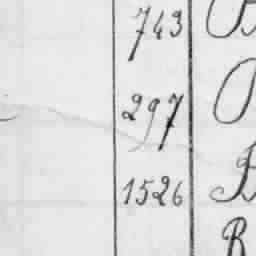 743 B
297
1526 B
R